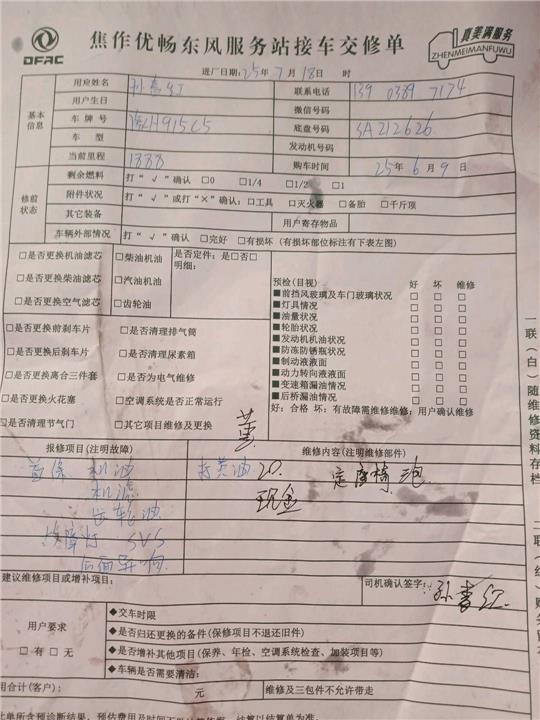 DFAC
焦作优畅东风服务站接车交修单
真美满服务
ZHENMEIMANFUWU
进厂日期: 25年 7月 18日 时
基本信息
用户姓名 联系电话 139 0389 7174
用户生日 微信号码
车牌号 底盘号码 SA212626
车型 发动机号码
当前里程 1888 购车时间 25年 6月 9日
修前状态
剩余燃料 打“√”确认 □0 □1/4 □1/2 □1
附件状况 打“√”或打“×”确认: □工具 □灭火器 □备胎 □千斤顶
其它装备 用户寄存物品
车辆外部情况 打“√”确认 □完好 □有损坏 (有损坏部位标注有下表左图)
□是否更换机油滤芯 □柴油机油 是否定件: 是□否□
明细:
□是否更换柴油滤芯 □汽油机油
□是否更换空气滤芯 □齿轮油
□是否更换前刹车片 □是否清理排气筒
□是否更换后刹车片 □是否清理尿素箱
□是否更换离合三件套 □是否为电气维修
□是否更换火花塞 □空调系统是否正常运行
□是否清理节气门 □其它项目维修及更换
预检(目视) 好 坏 维修
■前挡风玻璃及车门玻璃状况 □ □ □
■灯具情况 □ □ □
■油量状况 □ □ □
■轮胎状况 □ □ □
■发动机机油状况 □ □ □
■防冻防锈瓶状况 □ □ □
■制动液液面 □ □ □
■动力转向液液面 □ □ □
■变速箱漏油情况 □ □ □
■后桥漏油情况 □ □ □
好: 合格 坏: 有故障需维修维修: 用户确认维修
报修项目(注明故障) 维修内容(注明维修部件)
首保 机油
机滤
齿轮油
故障灯 SVS
后面异响
打黄油 20.
现金
定座椅
建议维修项目或增补项目: 司机确认签字:
用户要求
□有 □无
◆交车时限
◆是否归还更换的备件(保修项目不退还旧件)
◆是否增补其他项目(保养、年检、空调系统检查、加装项目等)
◆车辆是否需要清洁:
用合计(客户): 元 维修及三包件不允许带走
一联(白)随维修资料存档